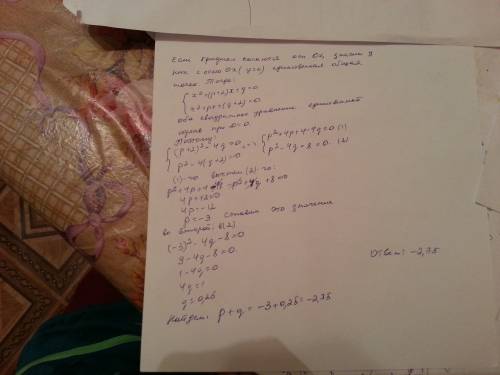 Если графики касаются оси Ox, значит у
них с осью Ox (y=0) единственная общая
точка. Тогда:
{ x²+(p+2)x+q=0
{ x²+px+(q+2)=0
оба квадратные уравнения
при D=0.
Поэтому:
{ (p+2)²-4q=0 { p²+4p+4-4q=0 (1)
{ p²-4(q+2)=0 { p²-4q-8=0 (2)
(1)-го вычтем (2)-го:
p²+4p+4-4q-p²+4q+8=0
4p+12=0
4p=-12
p=-3 ставим это значение
во второй: (2)
(-3)²-4q-8=0
9-4q-8=0
1-4q=0
4q=1
q=0,25
Найдем: p+q=-3+0,25=-2,75
Ответ: -2,75